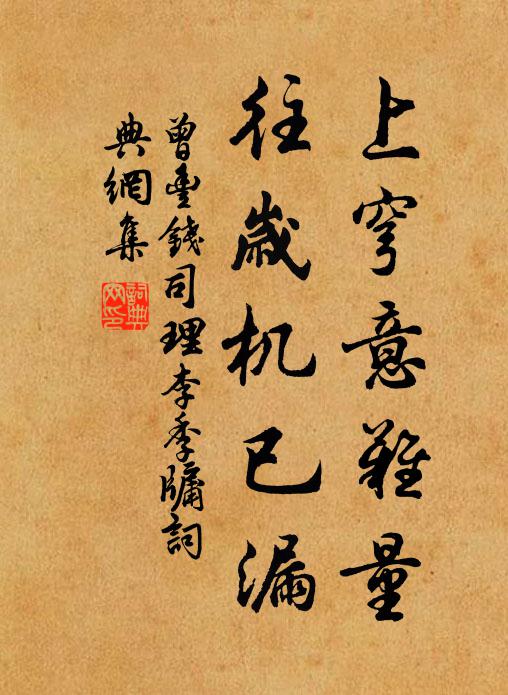 上穹意難量
往歲机已漏
曾豐錢司理李季牗詞
典網集
詞典
网印